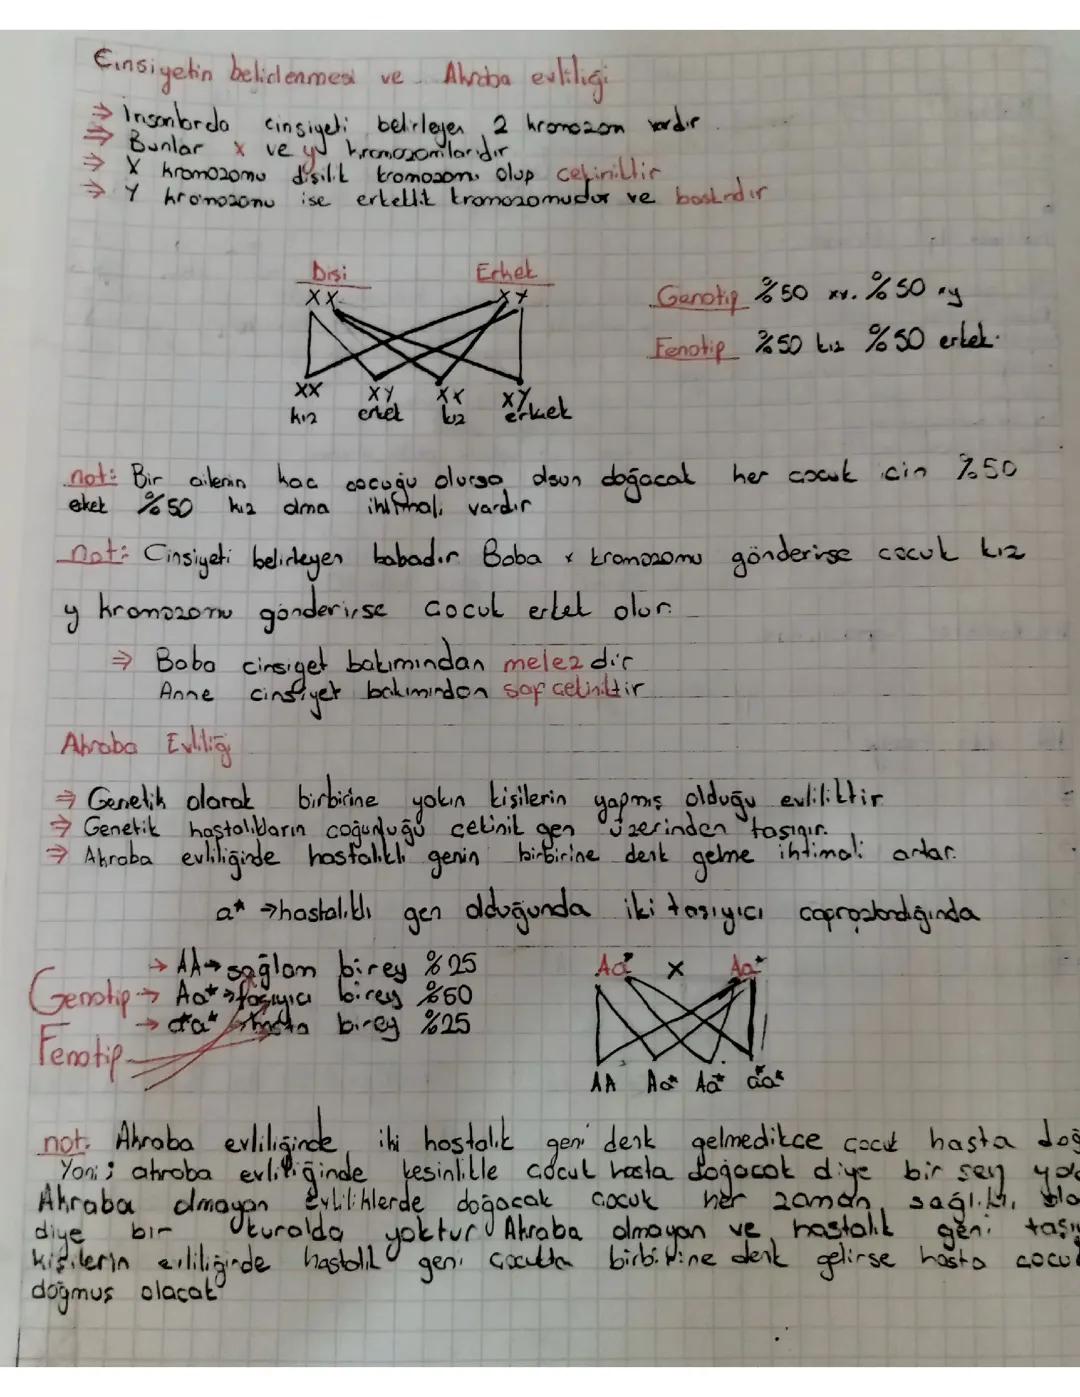 Cinsiyetin belirlenmesi ve Akraba evliliği
⇒ İnsanlarda cinsiyeti belirleyen 2 kromozom vardır.
⇒ Bunlar x ve y kromozomlarıdır
⇒ X kromozomu dişilik kromozomu olup çekiniktir
⇒ Y kromozomu ise erkeklik kromozomudur ve baskındır
Dişi Erkek
XX XY
Genotip %50 xx. %50 xy
Fenotip %50 kız %50 erkek.
XX XY XX XY
kız erkek kız erkek
not: Bir ailenin kaç çocuğu olursa olsun doğacak her çocuk için %50
erkek %50 kız olma ihtimali vardır
not: Cinsiyeti belirleyen babadır Baba x kromozomu gönderirse çocuk kız
y kromozomu gönderirse çocuk erkek olur.
⇒ Baba cinsiyet bakımından melezdir
Anne cinsiyet bakımından saf çekiniktir
Akraba Evliliği
⇒ Genetik olarak birbirine yakın kişilerin yapmış olduğu evliliktir
⇒ Genetik hastalıkların çoğunluğu çekinik gen üzerinden taşınır.
⇒ Akraba evliliğinde hastalıklı genin birbirine denk gelme ihtimali artar.
a* → hastalıklı gen olduğunda iki taşıyıcı çaprazlandığında
→ AA → sağlam birey %25
Genotip → Aa* → taşıyıcı birey %50
→ a*a* → hasta birey %25
Fenotip
Aa* x Aa*
AA Aa* Aa* a*a*
not. Akraba evliliğinde iki hastalık geni denk gelmedikçe çocuk hasta doğ
Yani; akraba evliliğinde kesinlikle çocuk hasta doğacak diye bir şey yok
Akraba olmayan evliliklerde doğacak çocuk her zaman sağlıklı
diye bir kuralda yoktur Akraba olmayan ve hastalık geni taşıy
kişilerin evliliğinde hastalık geni çocukta birbirine denk gelirse hasta çocuk
doğmuş olacak